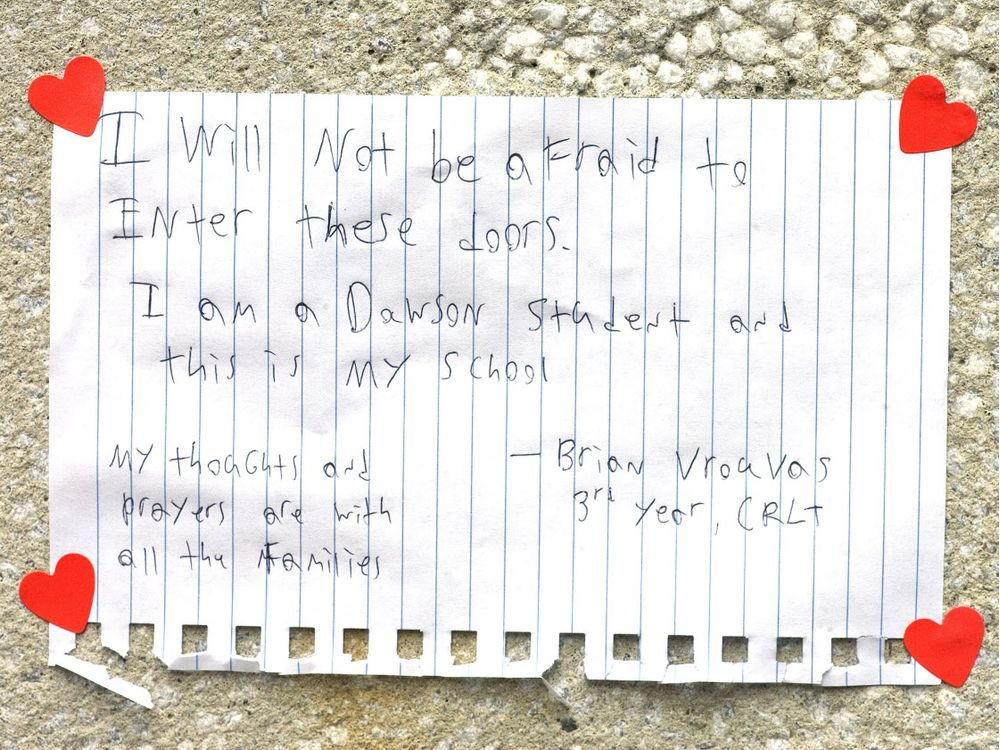 I Will Not be afraid to
ENter these doors.
I am a Dawson student and
this is my school
My thoughts and
prayers are with
all the families
— Brian Vroavas
3rd year, CRLT